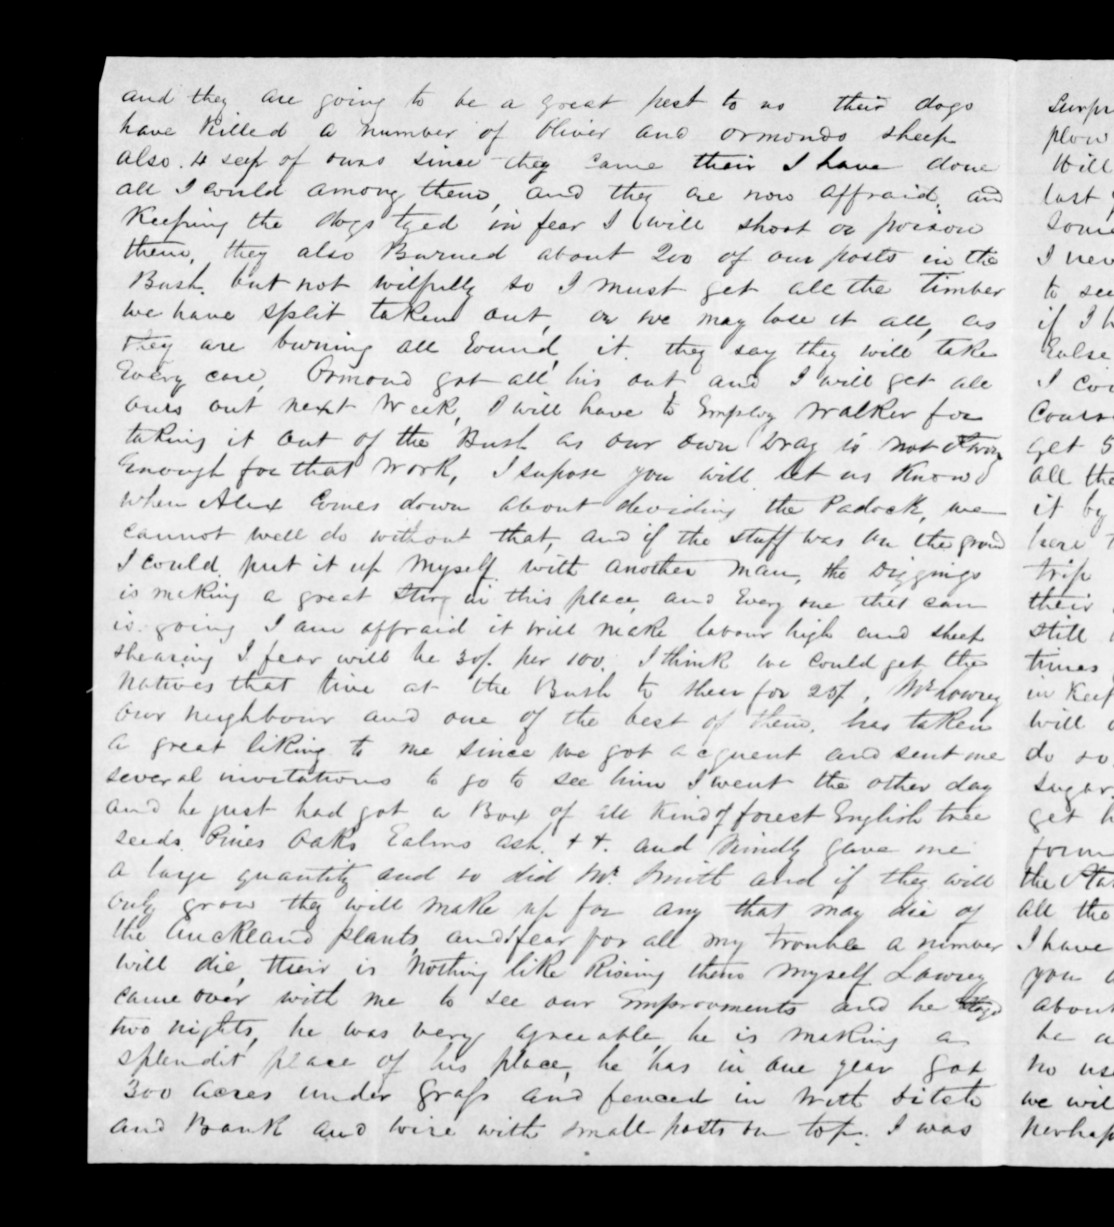 and they are going to be a great pest to us their dogs
have Killed a number of Oliver and ormonds sheep
also 4 seep of ours since they came their I have done
all I could among them, and they are now affraid, and
Keeping the dogs tyed in fear I will shoot or poison
them, they also Burned about 200 of our posts in the
Bush. but not wilfully so I must get all the timber
we have split taken out, or we may lose it all, as
they are burning all Round, it. they say they will take
Every care, Ormond got all his out and I will get all
ours out next Week, I will have to Employ Walker for
taking it out of the Bush as our own Dray is not strong
Enough for that Work, I supose you will let us Know
when Alex Comes down about deviding the Padock, we
cannot well do without that, and if the stuff was on the ground
I could put it up Myself with another man, the Diggings
is making a great stirg in this place, and Every one that can
is going I am affraid it will make labour high and sheep
shearing I fear will be 30/. per 100. I think we could get the
Natives that live at the Bush to shear for 25/. Mr Lowrey
our neighbour and one of the best of them, has taken
a great liking to me since we got acquent and sent me
several invitations to go to see him I went the other day
and he just had got a Box of all Kind of forest English tree
seeds Pines Oaks Ealms ash. & &. and Kindly gave me
a large quantity and so did Mr. Smith and if they will
only grow they will make up for any that may die of
the Auckland plants, and I fear for all my trouble a number
will die, their is Nothing like Rising them Myself Lowrey
came over with me to see our Emprovments and he stayd
two nights, he was very agreeable, he is making a
splendit place of his place, he has in one year got
300 acres under Grass and fenced in With ditch
and Bank and wire with small posts on top. I was
Surpr
plow
Will
last
Some
I nev
to see
if I h
Ealse
I cou
Cours
get 5
all the
it by
here
trip
their
still
times
in Keep
will
do so
Sugar
get h
form
the Sta
all the
I have
you
about
he a
no use
we will
perhap